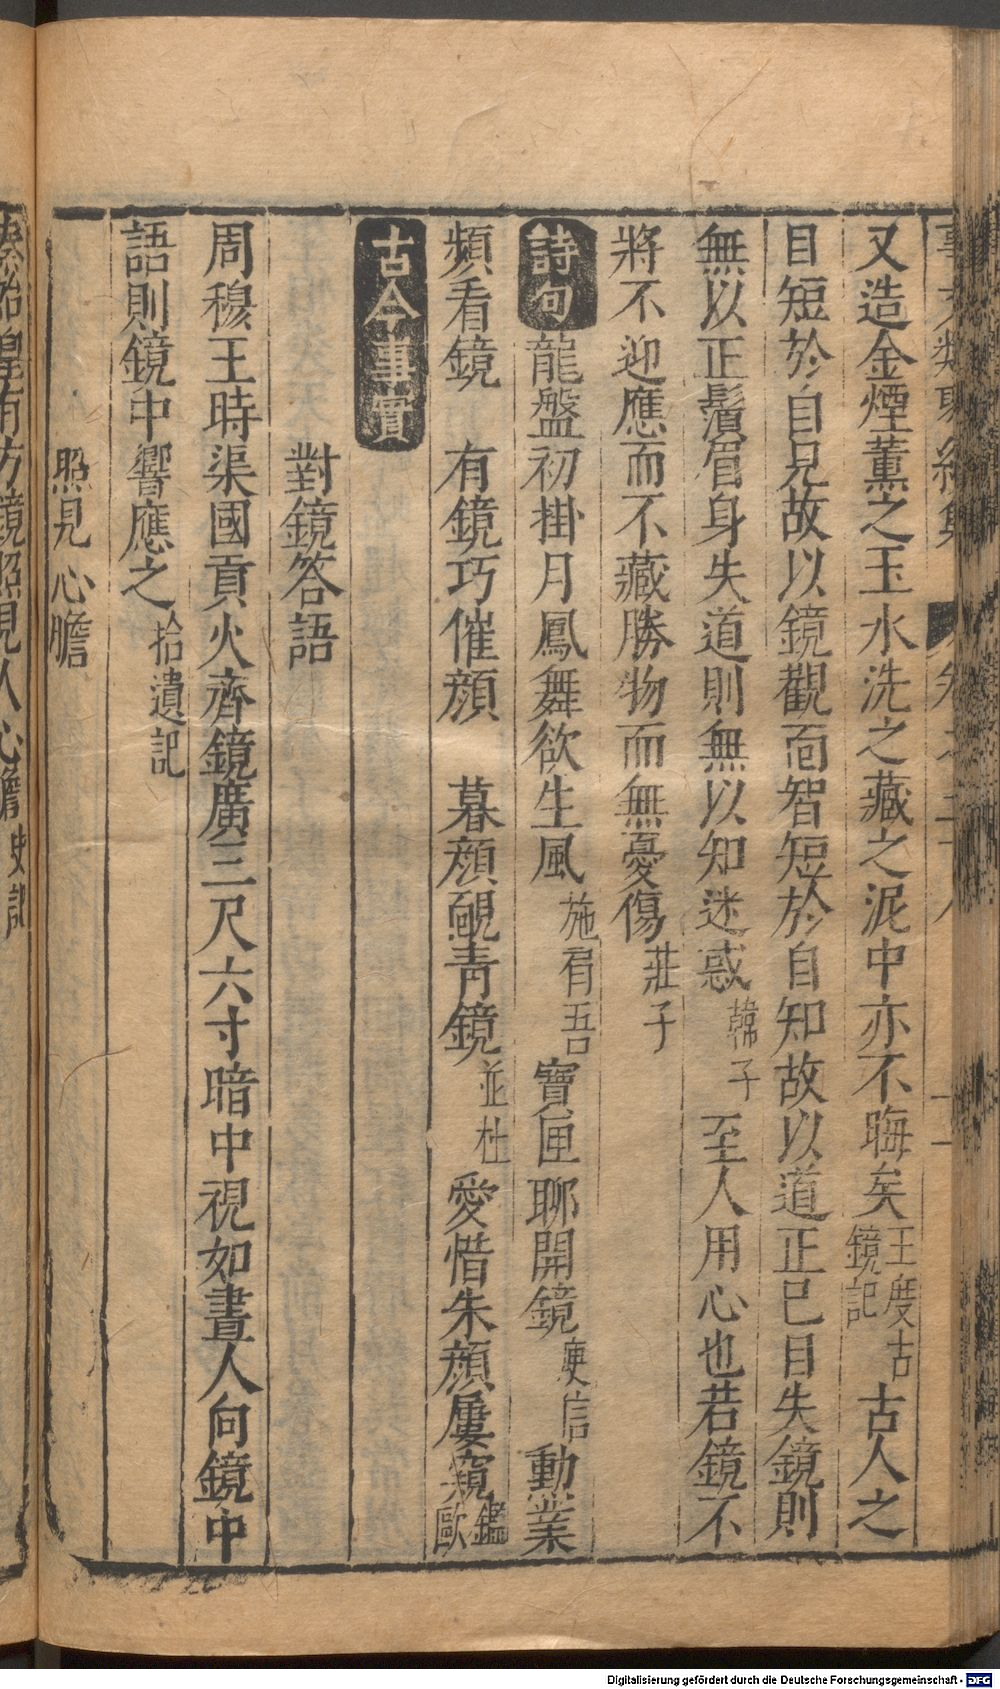 事文類聚續集 卷之二十八
又造金煙薰之玉水洗之藏之泥中亦不晦矣王度古鏡記古人之
目短於自見故以鏡觀面智短於自知故以道正已目失鏡則
無以正鬚眉身失道則無以知迷惑韓子至人用心也若鏡不
將不迎應而不藏勝物而無憂傷莊子
詩句龍盤初掛月鳳舞欲生風施肩吾寶匣聊開鏡庾信動業
頻看鏡 有鏡巧催顏 暮顏靦青鏡並杜愛惜朱顏屢窺鑑歐
古今事實
對鏡答語
周穆王時渠國貢火齊鏡廣三尺六寸暗中視如晝人向鏡中
語則鏡中響應之拾遺記
照見心膽
秦始皇有方鏡照見人心膽史記
Digitalisierung gefördert durch die Deutsche Forschungsgemeinschaft - DFG